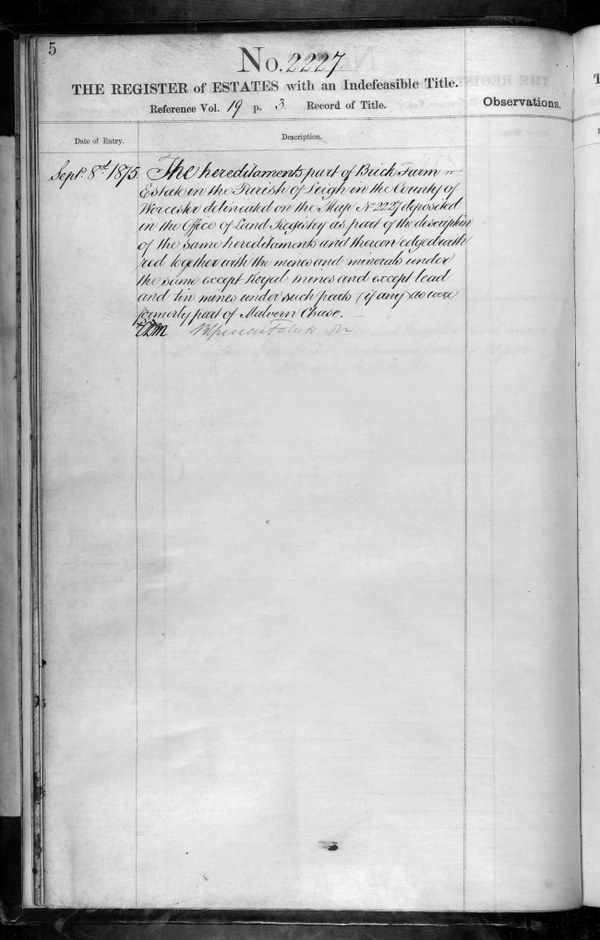 5
No. 2227.
THE REGISTER of ESTATES with an Indefeasible Title.
Reference Vol. 19 p. 3. Record of Title.
Observations.
Date of Entry.
Description.
Sept. 8th 1875
The hereditaments part of Brick Farm
Estate in the Parish of Leigh in the County of
Worcester delineated on the Map No 2227 deposited
in the Office of Land Registry as part of the description
of the same hereditaments and thereon edged with
red together with the mines and minerals under
the same except Royal mines and except lead
and tin mines under such parts (if any) as were
formerly part of Malvern Chase.